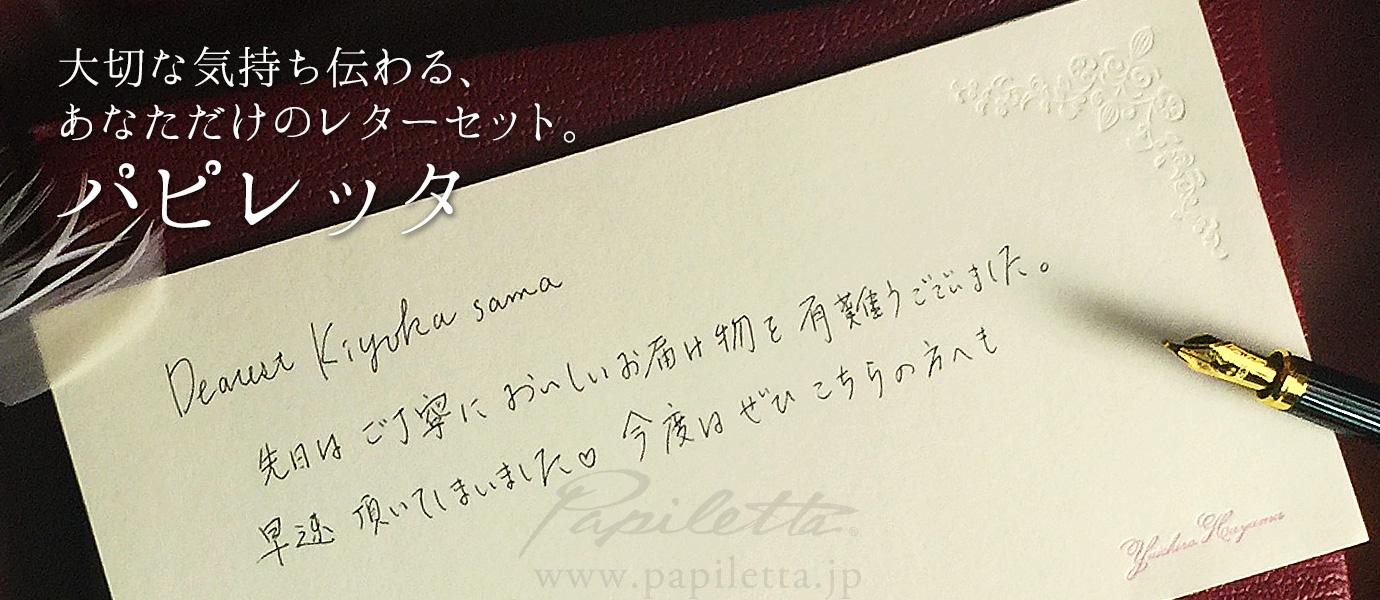 大切な気持ち伝わる、
あなただけのレターセット。
パピレッタ
Dearest Kiyoka sama
先日は ご丁寧に おいしいお届け物を 有難うございました。
早速 頂いてしまいました♡ 今度は ぜひ こちらの方へも
Papiletta
www.papiletta.jp
Hayama